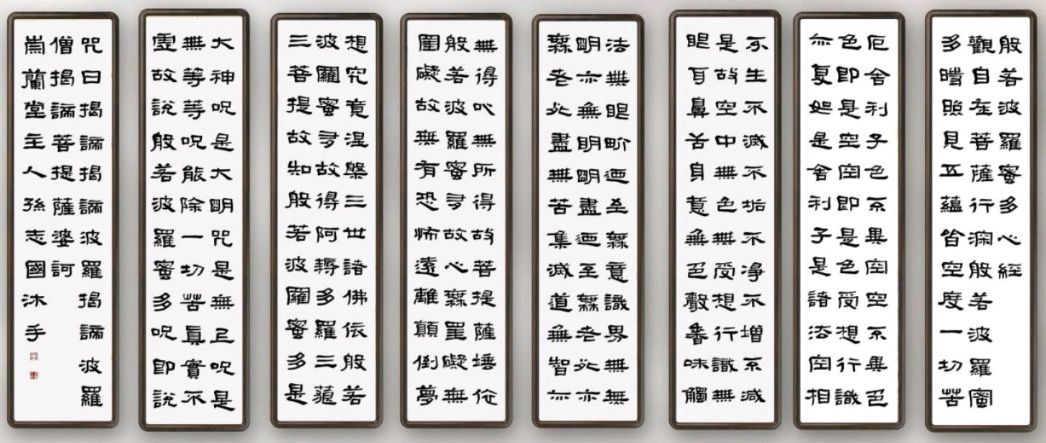 般若波羅蜜多心經
觀自在菩薩行深般若波羅蜜
多時照見五蘊皆空度一切苦
厄舍利子色不異空空不異色
色即是空空即是色受想行識
亦復如是舍利子是諸法空相
不生不滅不垢不淨不增不減
是故空中無色無受想行識無
眼耳鼻舌身意無色聲香味觸
法無眼界迺至無意識界無無
明亦無明明盡迺至無老死亦
無老死盡無苦集滅道無智亦
無得以無所得故菩提薩埵依
般若波羅蜜多故心無罣礙無
罣礙故無有恐怖遠離顛倒夢
想究竟涅槃三世諸佛依般若
波羅蜜多故得阿耨多羅三藐
三菩提故知般若波羅蜜多是
大神咒是大明咒是無上咒是
無等等咒能除一切苦真實不
虛故說般若波羅蜜多咒即說
咒曰揭諦揭諦波羅揭諦波羅
僧揭諦菩提薩婆訶
崇蘭堂主人孫志國沐手